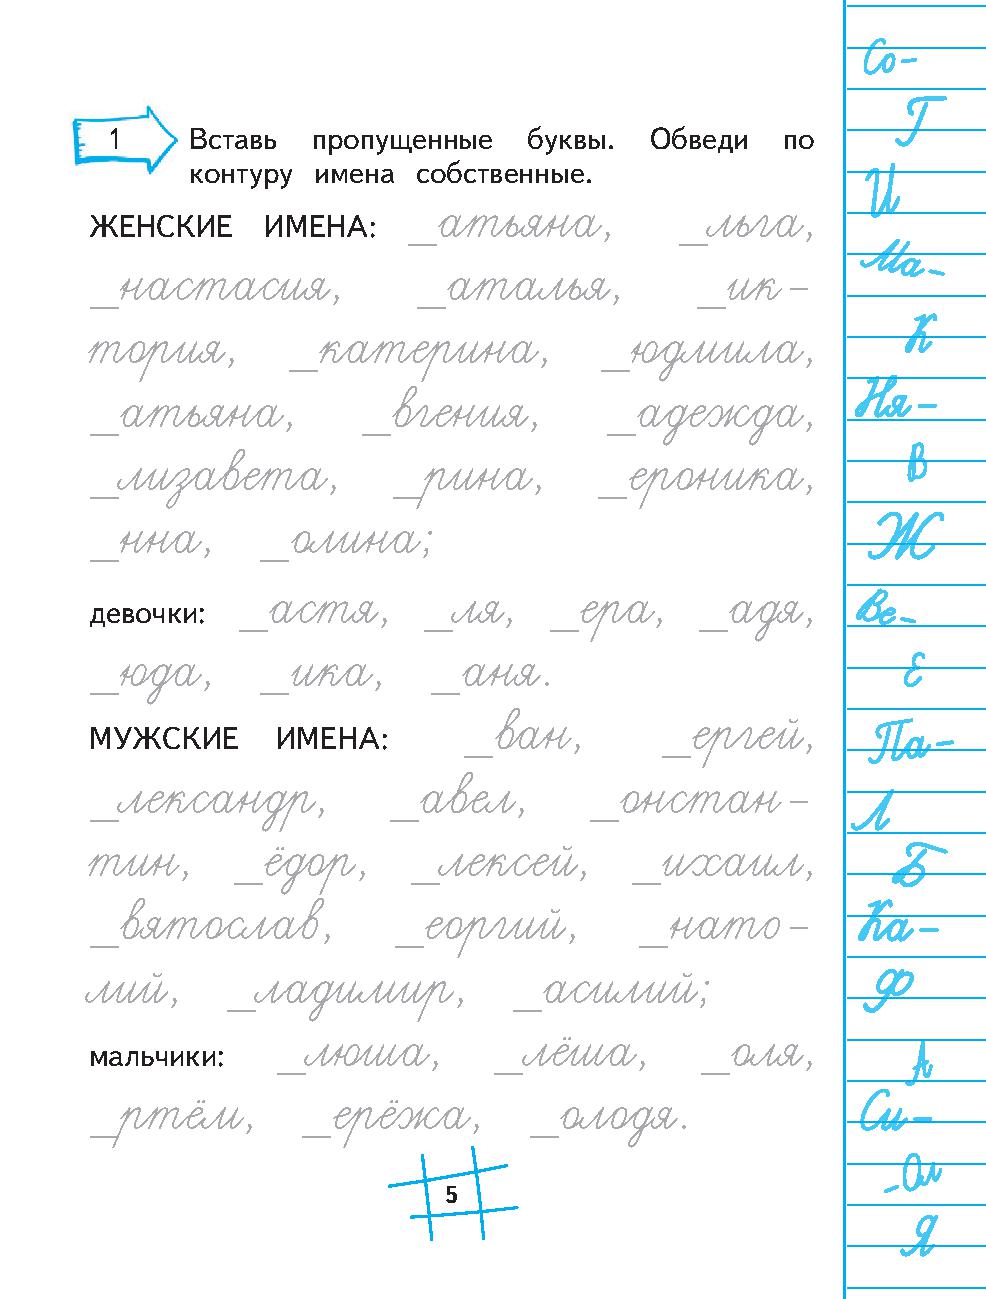 1 Вставь пропущенные буквы. Обведи по
контуру имена собственные.
ЖЕНСКИЕ ИМЕНА: _атьяна, _льга,
_настасия, _аталья, _ик-
тория, _катерина, _юдмила,
_атьяна, _вгения, _адежда,
_лизавета, _рина, _ероника,
_нна, _олина;
девочки: _астя, _ля, _ера, _адя,
_юда, _ика, _аня.
МУЖСКИЕ ИМЕНА: _ван, _ергей,
_лександр, _авел, _онстан-
тин, _ёдор, _лексей, _ихаил,
_вятослав, _еоргий, _нато-
лий, _ладимир, _асилий;
мальчики: _люша, _лёша, _оля,
_ртём, _ерёжа, _олодя.
5
Со-
Г
И
Ма-
К
Ня-
В
Ж
Ве-
Е
Па-
Л
Б
Ка-
Ф
А
Си-
-Ол
Я